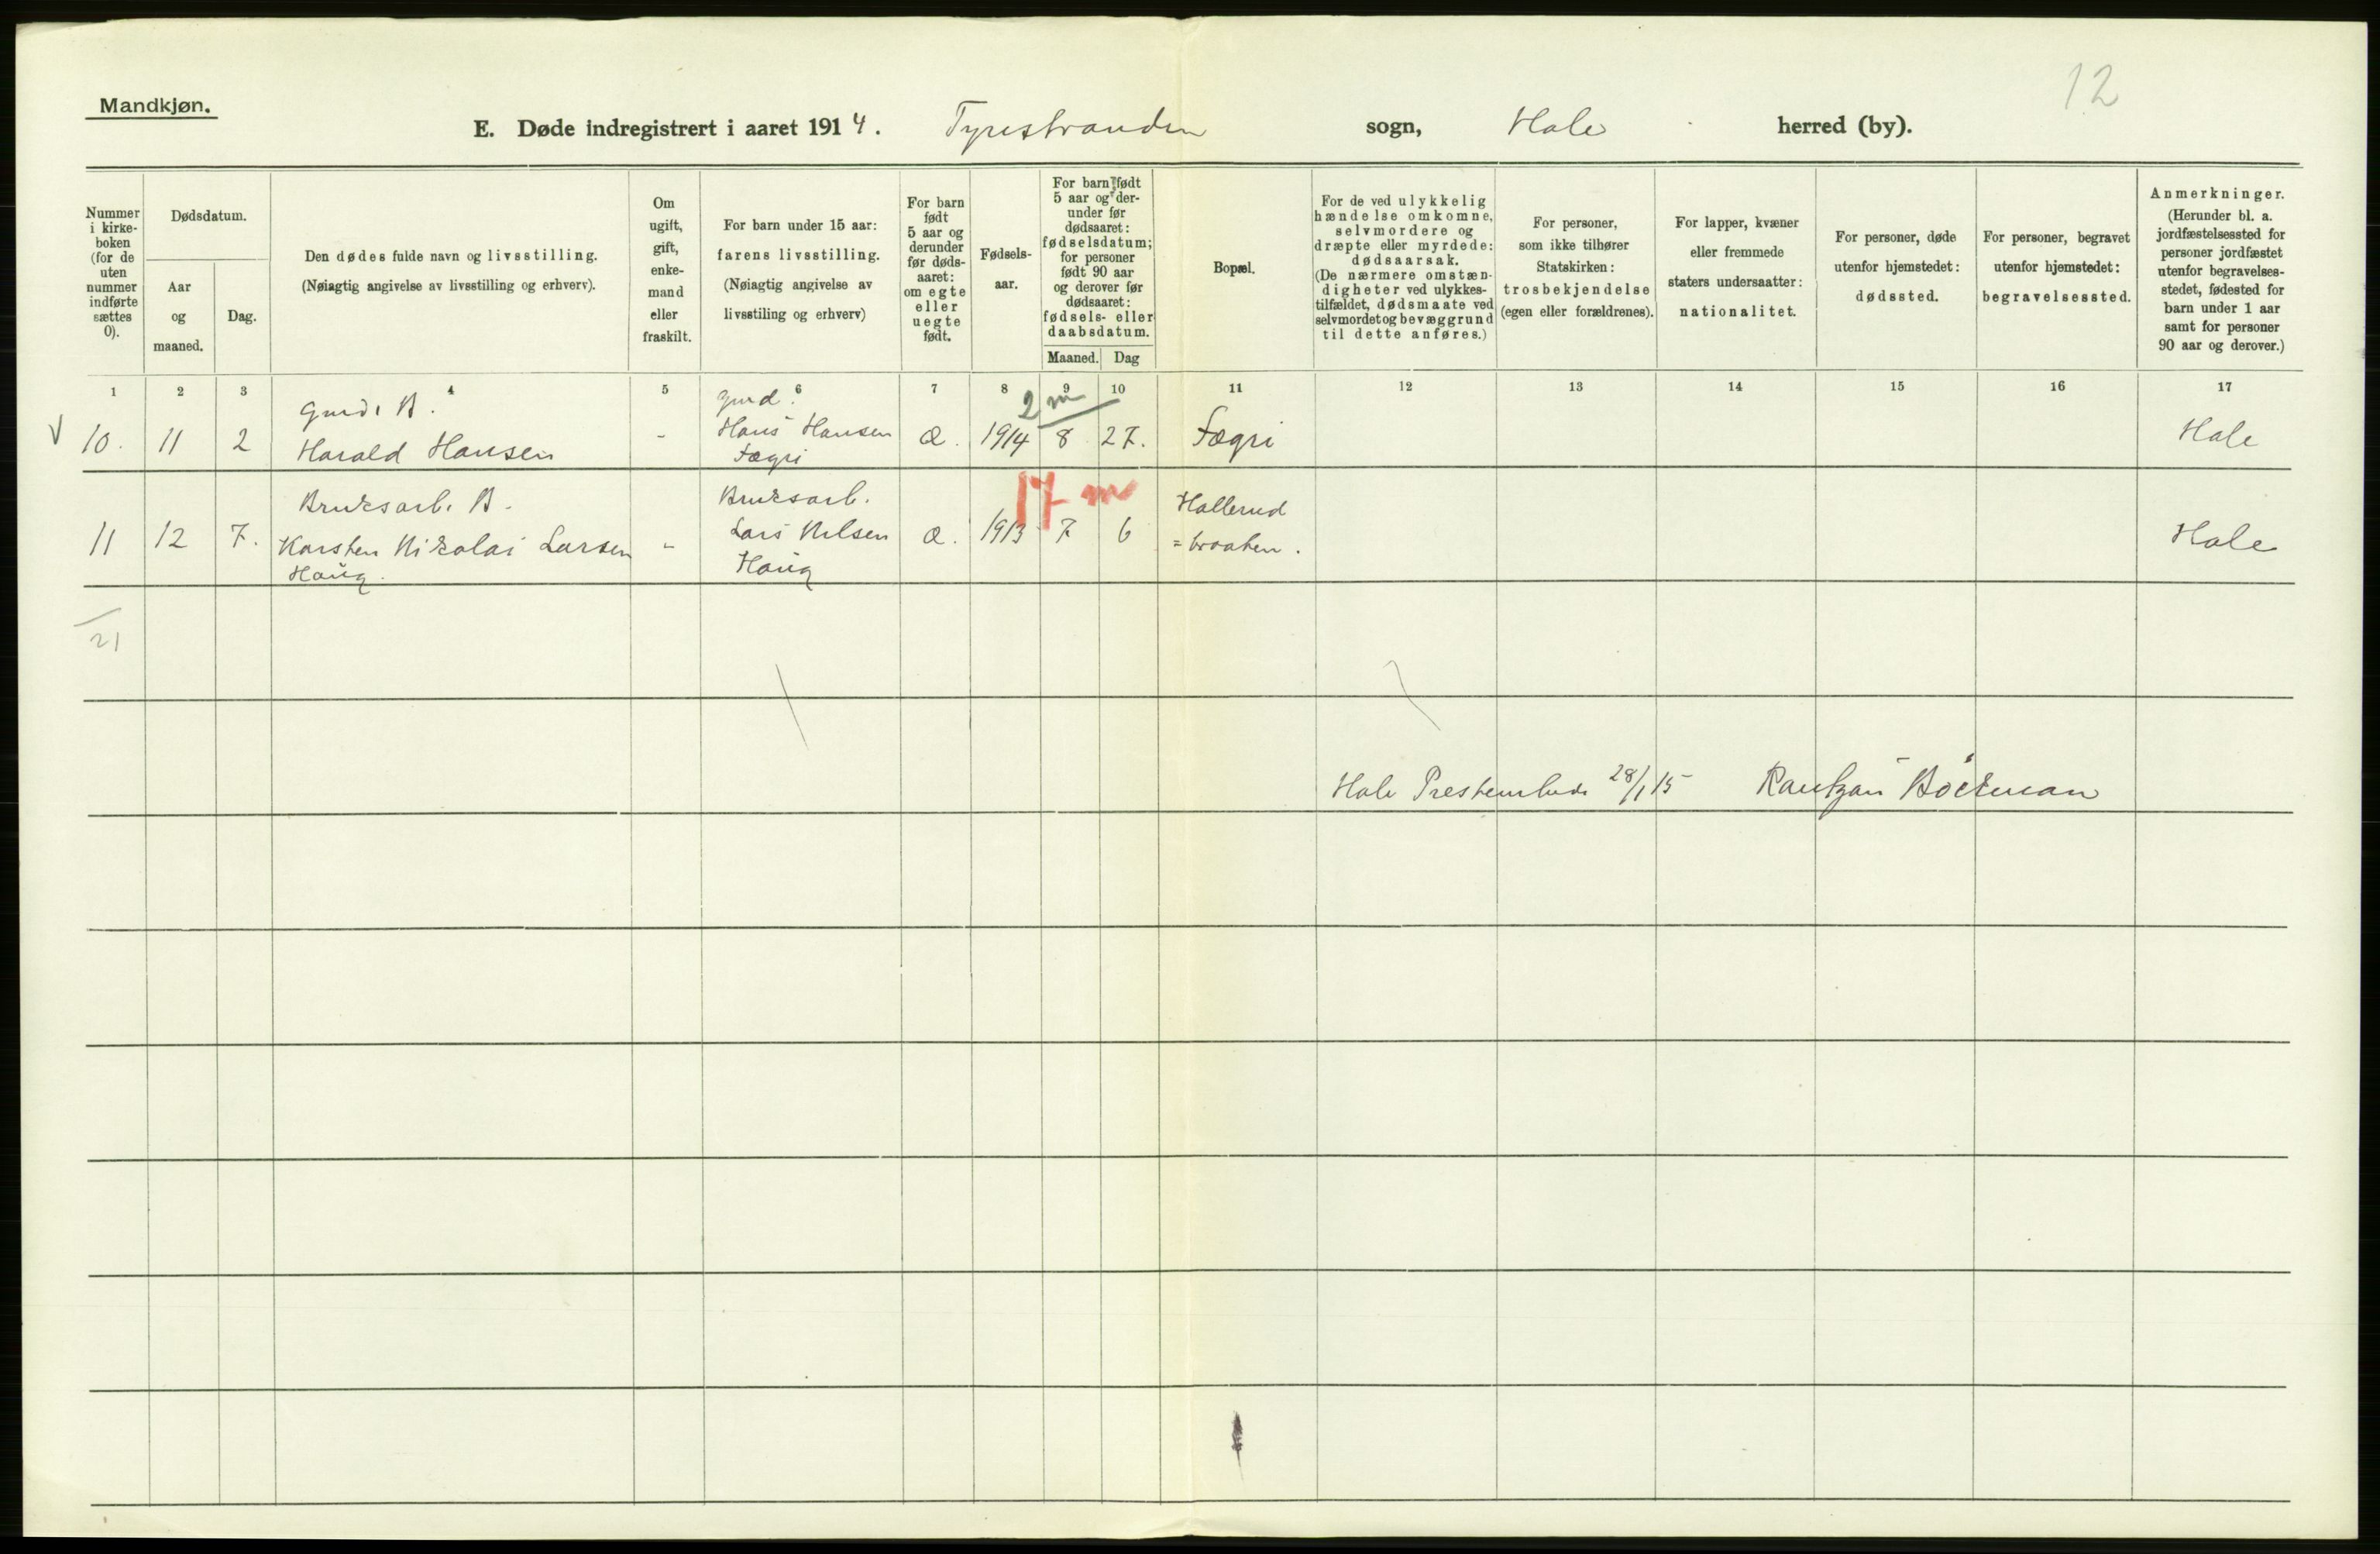 12
Mandkjøn.
E. Døde indregistrert i aaret 1914. Tyristranden sogn, Hole herred (by).
Nummer i kirke- boken (for de uten nummer indførte sættes 0).
Dødsdatum.
Aar og maaned.
Dag.
Den dødes fulde navn og livsstilling.
(Nøiagtig angivelse av livsstilling og erhverv).
Om ugift, gift, enke- mand eller fraskilt.
For barn under 15 aar:
farens livsstilling.
(Nøiagtig angivelse av livsstiling og erhverv)
For barn født 5 aar og derunder før døds- aaret: om egte eller uegte født.
Fødsels- aar.
For barn født 5 aar og der- under før dødsaaret: fødselsdatum; for personer født 90 aar og derover før dødsaaret: fødsels- eller daabsdatum.
Maaned. Dag
Bopæl.
For de ved ulykkelig hændelse omkomne, selvmordere og dræpte eller myrdede: dødsaarsak.
(De nærmere omstæn- digheter ved ulykkes- tilfældet, dødsmaate ved selvmordet og bevæggrund til dette anføres.)
For personer, som ikke tilhører Statskirken: trosbekjendelse (egen eller forældrenes).
For lapper, kvæner eller fremmede staters undersaatter: nationalitet.
For personer, døde utenfor hjemstedet: dødssted.
For personer, begravet utenfor hjemstedet: begravelsessted.
Anmerkninger.
(Herunder bl. a. jordfæstelsessted for personer jordfæstet utenfor begravelses- stedet, fødested for barn under 1 aar samt for personer 90 aar og derover.)
1 2 3 4 5 6 7 8 9 10 11 12 13 14 15 16 17
Gmd. B. Gmd. 2 m
10. 11 2 Harald Hansen - Hans Hansen Æ. 1914 8 27. Fægri Hole
Fægri
Bruksarb. B. Bruksarb. 17 m Hallerud
11 12 7. Karsten Nikolai Larsen - Lars Nilsen Æ. 1913 7 6 =braaten. Hole
Haug. Haug
21
Hole 28/1 15 Rantzau Böckman